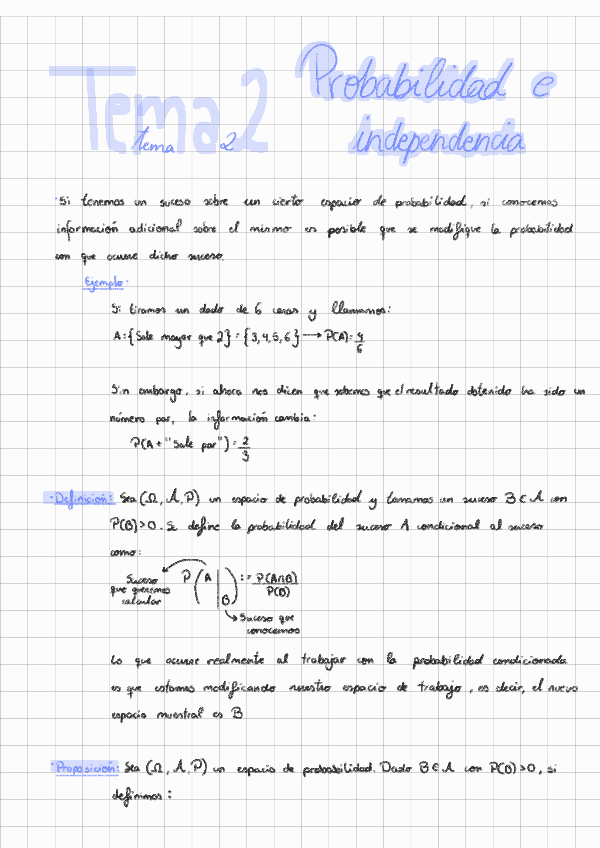 Tema 2
tema 2
Probabilidad e
independencia
·Si tenemos un suceso sobre un cierto espacio de probabilidad, si conocemos
información adicional sobre el mismo es posible que se modifique la probabilidad
con que ocurre dicho suceso.
Ejemplo:
Si tiramos un dado de 6 caras y llamamos:
A={Sale mayor que 2} = {3,4,5,6} → P(A)= 4/6
Sin embargo, si ahora nos dicen que sabemos que el resultado obtenido ha sido un
número par, la información cambia:
P(A + "Sale par") = 2/3
·Definición: Sea (Ω, A, P) un espacio de probabilidad y tomamos un suceso B ∈ A con
P(B)>0. Se define la probabilidad del suceso A condicional al suceso
como:
Suceso que queremos calcular
P(A|B) := P(A∩B)/P(B)
Suceso que conocemos
Lo que ocurre realmente al trabajar con la probabilidad condicionada
es que estamos modificando nuestro espacio de trabajo, es decir, el nuevo
espacio muestral es B
·Proposición: Sea (Ω, A, P) un espacio de probabilidad. Dado B ∈ A con P(B)>0, si
definimos: